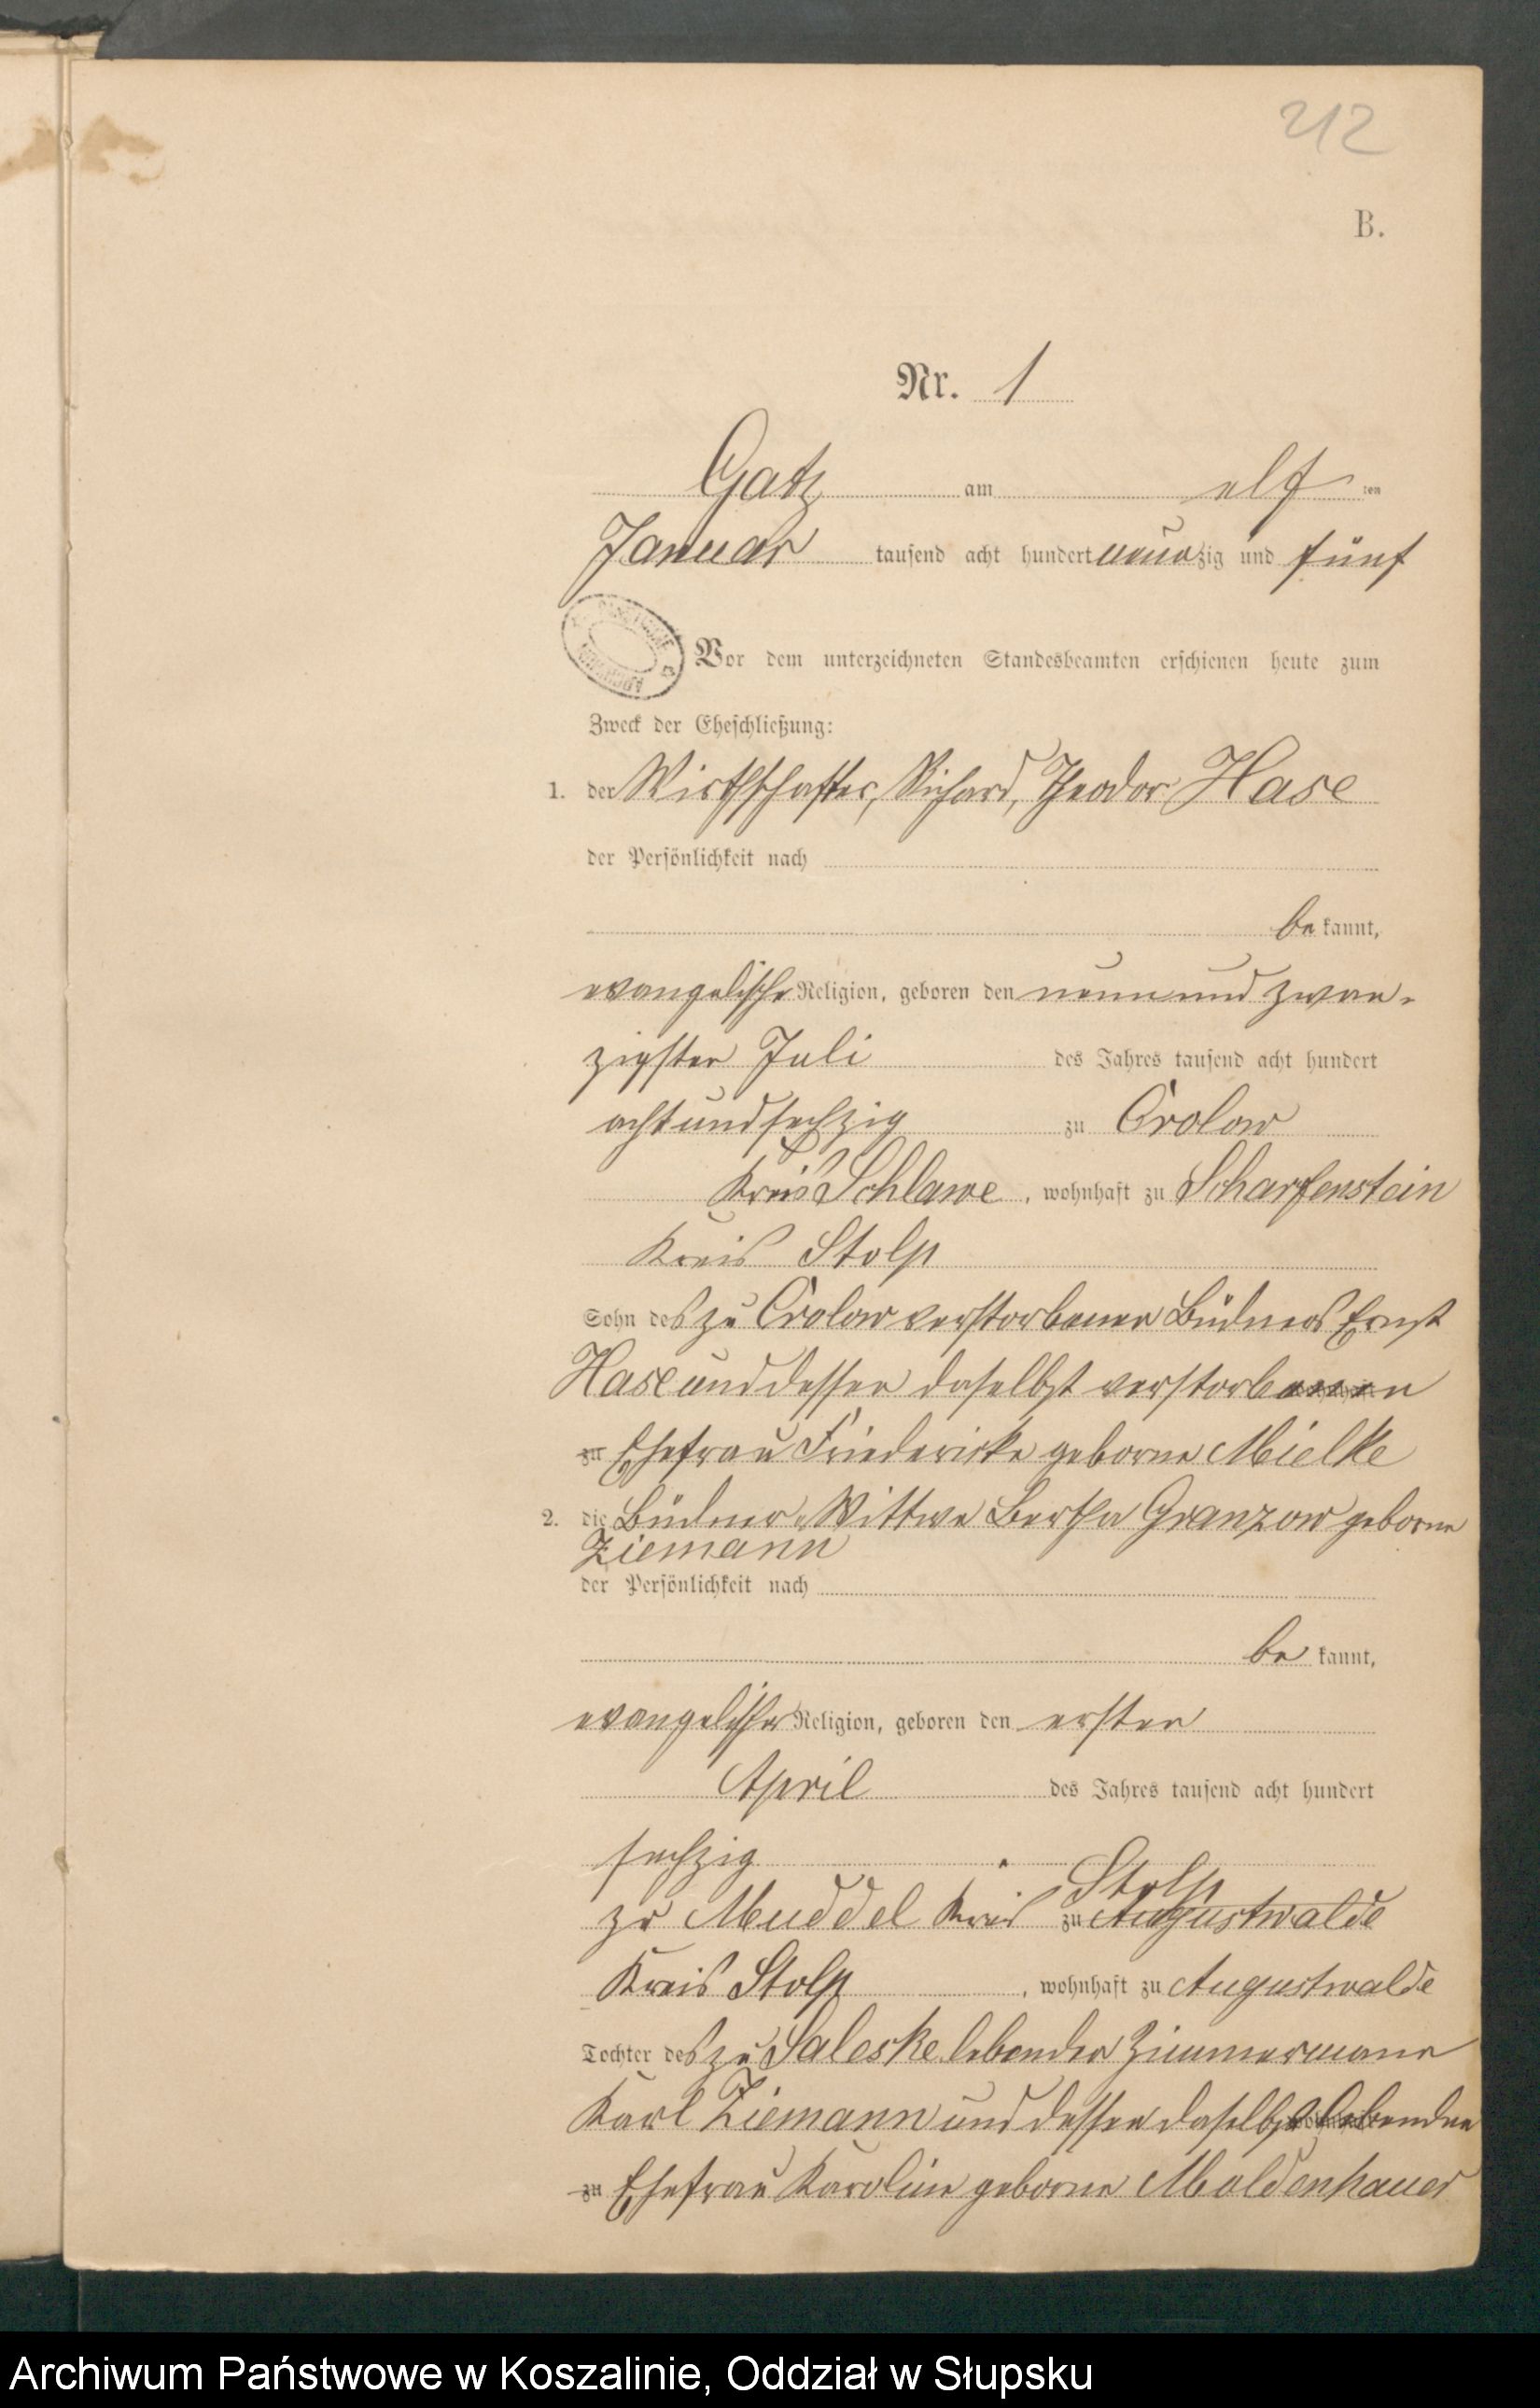 212
B.
Nr. 1
Gatz am elf ten
Januar tausend acht hundert neunzig und fünf
Vor dem unterzeichneten Standesbeamten erschienen heute zum
Zweck der Eheschließung:
1. der Wirthschafter, Richard, Theodor Hase
der Persönlichkeit nach
be kannt,
evangelischer Religion, geboren den neun und zwan-
zigsten Juli des Jahres tausend acht hundert
acht und sechzig zu Crolow
Kreis Schlawe, wohnhaft zu Scharfenstein
Kreis Stolp
Sohn des zu Crolow verstorbenen Büdners Ernst
Hase und dessen daselbst verstorbenen
zu Ehefrau Friedericke geborne Mielke
2. die Büdner-Wittwe Bertha Granzow geborne
Ziemann
der Persönlichkeit nach
be kannt,
evangelischer Religion, geboren den ersten
April des Jahres tausend acht hundert
sechzig
Stolp
zu Muddel Kreis zu Augustwalde
Kreis Stolp, wohnhaft zu Augustwalde
Tochter des zu Saleske lebenden Zimmermann
Karl Ziemann und dessen daselbst lebenden
zu Ehefrau Karoline geborne Moldenhauer
Archiwum Państwowe w Koszalinie, Oddział w Słupsku